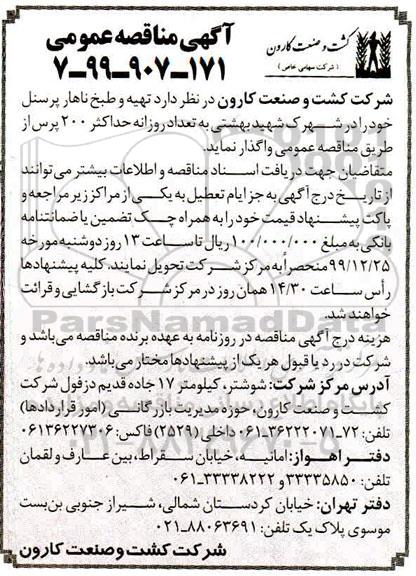 کشت و صنعت کارون
( شرکت سهامی خاص )
آگهی مناقصه عمومی
۷-۹۹-۹۰۷-۱۷۱
شرکت کشت و صنعت کارون در نظر دارد تهیه و طبخ ناهار پرسنل
خود را در شهرک شهید بهشتی به تعداد روزانه حداکثر ۲۰۰ پرس از
طریق مناقصه عمومی واگذار نماید.
متقاضیان جهت دریافت اسناد مناقصه و اطلاعات بیشتر می‌توانند
از تاریخ درج آگهی به جز ایام تعطیل به یکی از مراکز زیر مراجعه و
پاکت پیشنهاد قیمت خود را به همراه چک تضمین یا ضمانتنامه
بانکی به مبلغ ۱۰۰/۰۰۰/۰۰۰ ریال تا ساعت ۱۳ روز دوشنبه مورخه
۹۹/۱۲/۲۵ منحصراً به مرکز شرکت تحویل نمایند. کلیه پیشنهادها
رأس ساعت ۱۴/۳۰ همان روز در مرکز شرکت بازگشایی و قرائت
خواهند شد.
هزینه درج آگهی مناقصه در روزنامه به عهده برنده مناقصه می‌باشد و
شرکت در رد یا قبول هر یک از پیشنهادها مختار می‌باشد.
آدرس مرکز شرکت: شوشتر، کیلومتر ۱۷ جاده قدیم دزفول شرکت
کشت و صنعت کارون، حوزه مدیریت بازرگانی (امور قراردادها)
تلفن: ۷۲-۳۶۲۲۲۰۷۱-۰۶۱ داخلی (۲۵۲۹) فاکس: ۰۶۱۳۶۲۲۷۳۰۶
دفتر اهواز: امانیه، خیابان سقراط، بین عارف و لقمان
تلفن: ۳۳۳۳۵۸۵۰ و ۳۳۳۳۸۲۲۲-۰۶۱
دفتر تهران: خیابان کردستان شمالی، شیراز جنوبی بن‌بست
موسوی پلاک یک تلفن: ۸۸۰۶۳۶۹۱-۰۲۱
شرکت کشت و صنعت کارون
ParsNamadData